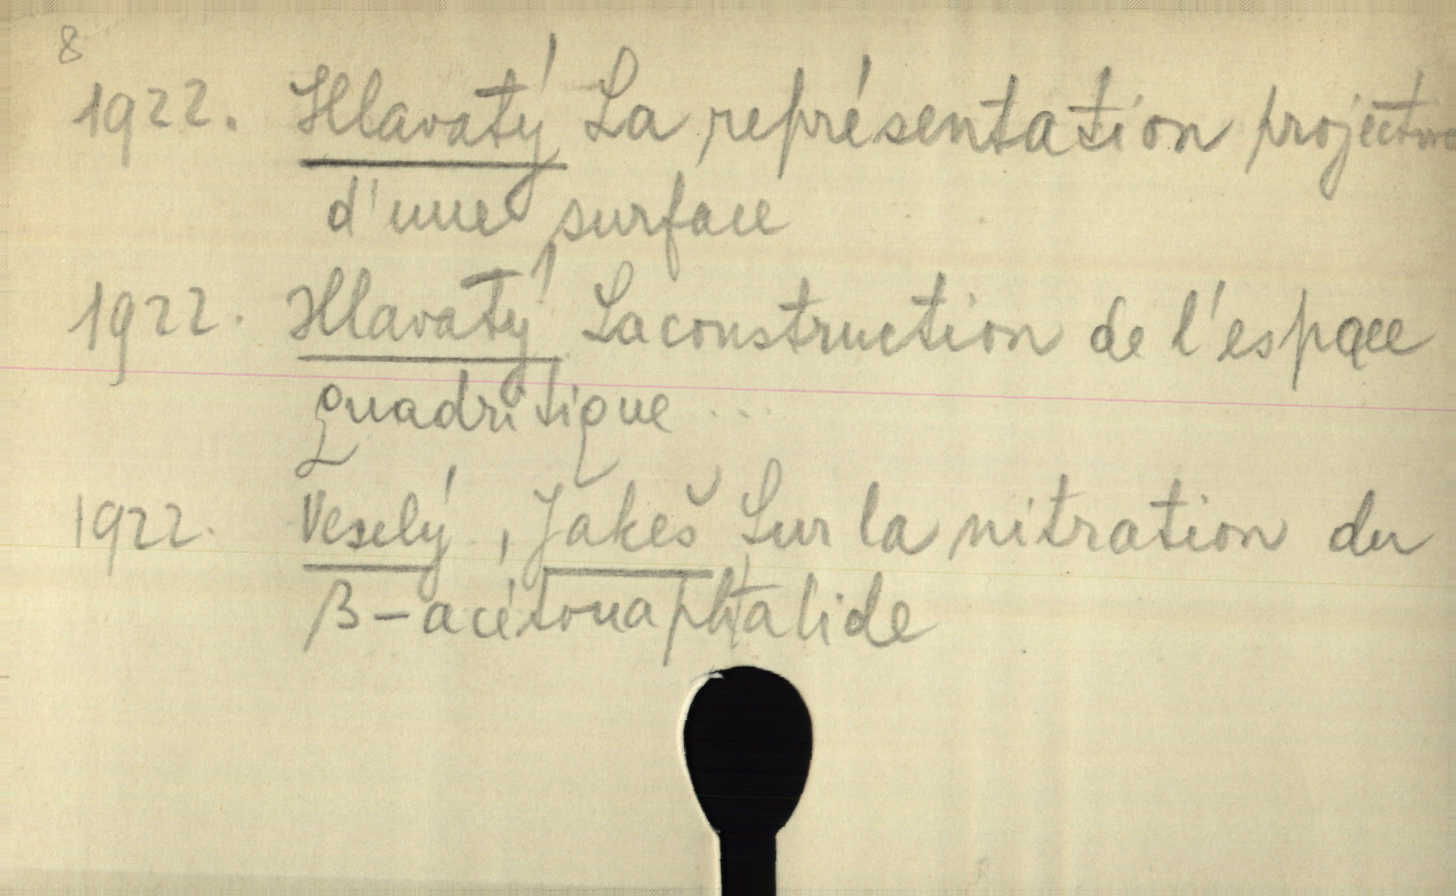 8
1922. Hlavatý La représentation projective
d'une surface
1922. Hlavatý La construction de l'espace
quadritique ...
1922. Veselý, Jakeš Sur la nitration du
β-acétonaphtalide